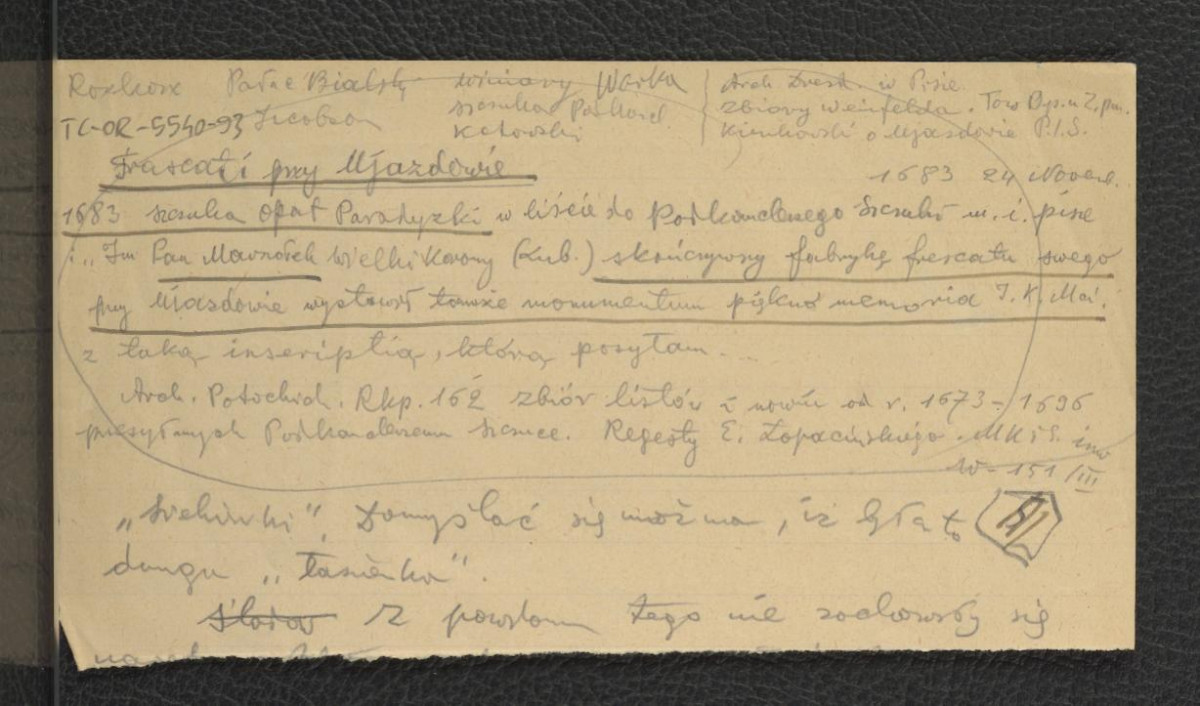 Rozkosz Pałac Bialski winiary Warka
Szczuka
Arch Drezd. w Pisie
zbiory Weinfelda. Tow
TC-OR-5540-93 Jacobson
Kotowski
o Ujazdowie P.I.S.
Frascati przy Ujazdowie
1683 24 Novem.
1683 szczuka opat Paradyzki w liście do Podkanclerzego Szczuki m. i. pisze
i „Im Pan Marszałek Wielki Korony (Lub.) skończywszy fabrykę frescatu swego
przy Ujazdowie wystawił tamże monumentum piękno memoria J. K. Mci.
z taką inscriptią, którą posyłam...
Arch. Potockich. Rkp. 162 zbiór listów i nowin od r. 1673-1696
przesyłanych Podkanclerzemu Szczuce. Regesty E. Łopacińskiego. MKiS. inw
W-151/III
Domyślać się można, iż była to
druga „Łazienka".
Z powodem tego nie zachowały się